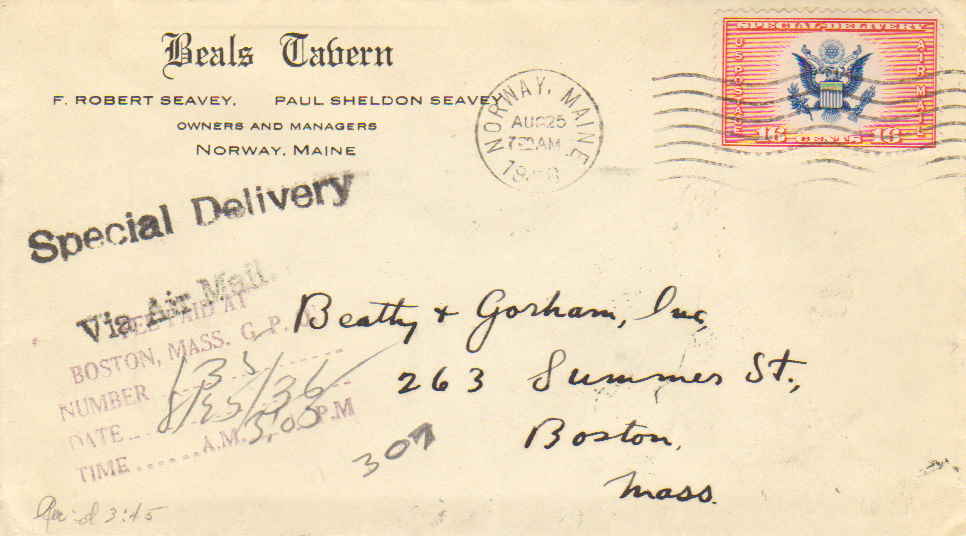 Beals Tavern
F. ROBERT SEAVEY. PAUL SHELDON SEAVEY
OWNERS AND MANAGERS
NORWAY, MAINE
NORWAY, MAINE
AUG 25
AM
SPECIAL DELIVERY
U S POSTAGE
AIR MAIL
16 CENTS 16
Special Delivery
Via Air Mail.
FEE PAID AT
BOSTON, MASS. G. P. O.
NUMBER 135
DATE 8/25/36
TIME A.M. 3,00 P.M
Beatty + Gorham, Inc,
263 Summer St.,
Boston,
Mass.
307
3:45